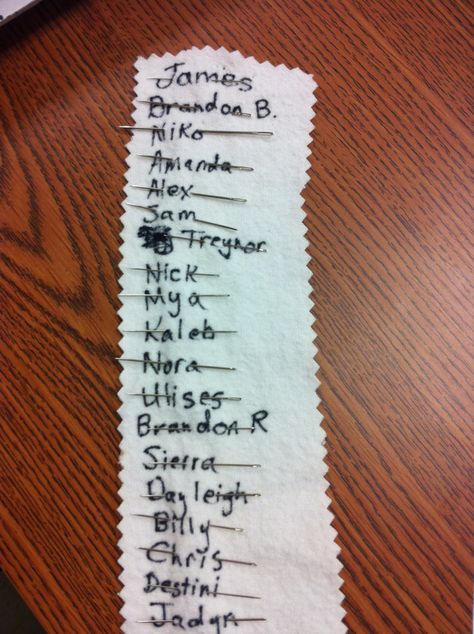 James
Brandon B.
Niko
Amanda
Alex
Sam
Treynor
Nick
Mya
Kaleb
Nora
Ulises
Brandon R
Sierra
Dayleigh
Billy
Chris
Destini
Jadyn